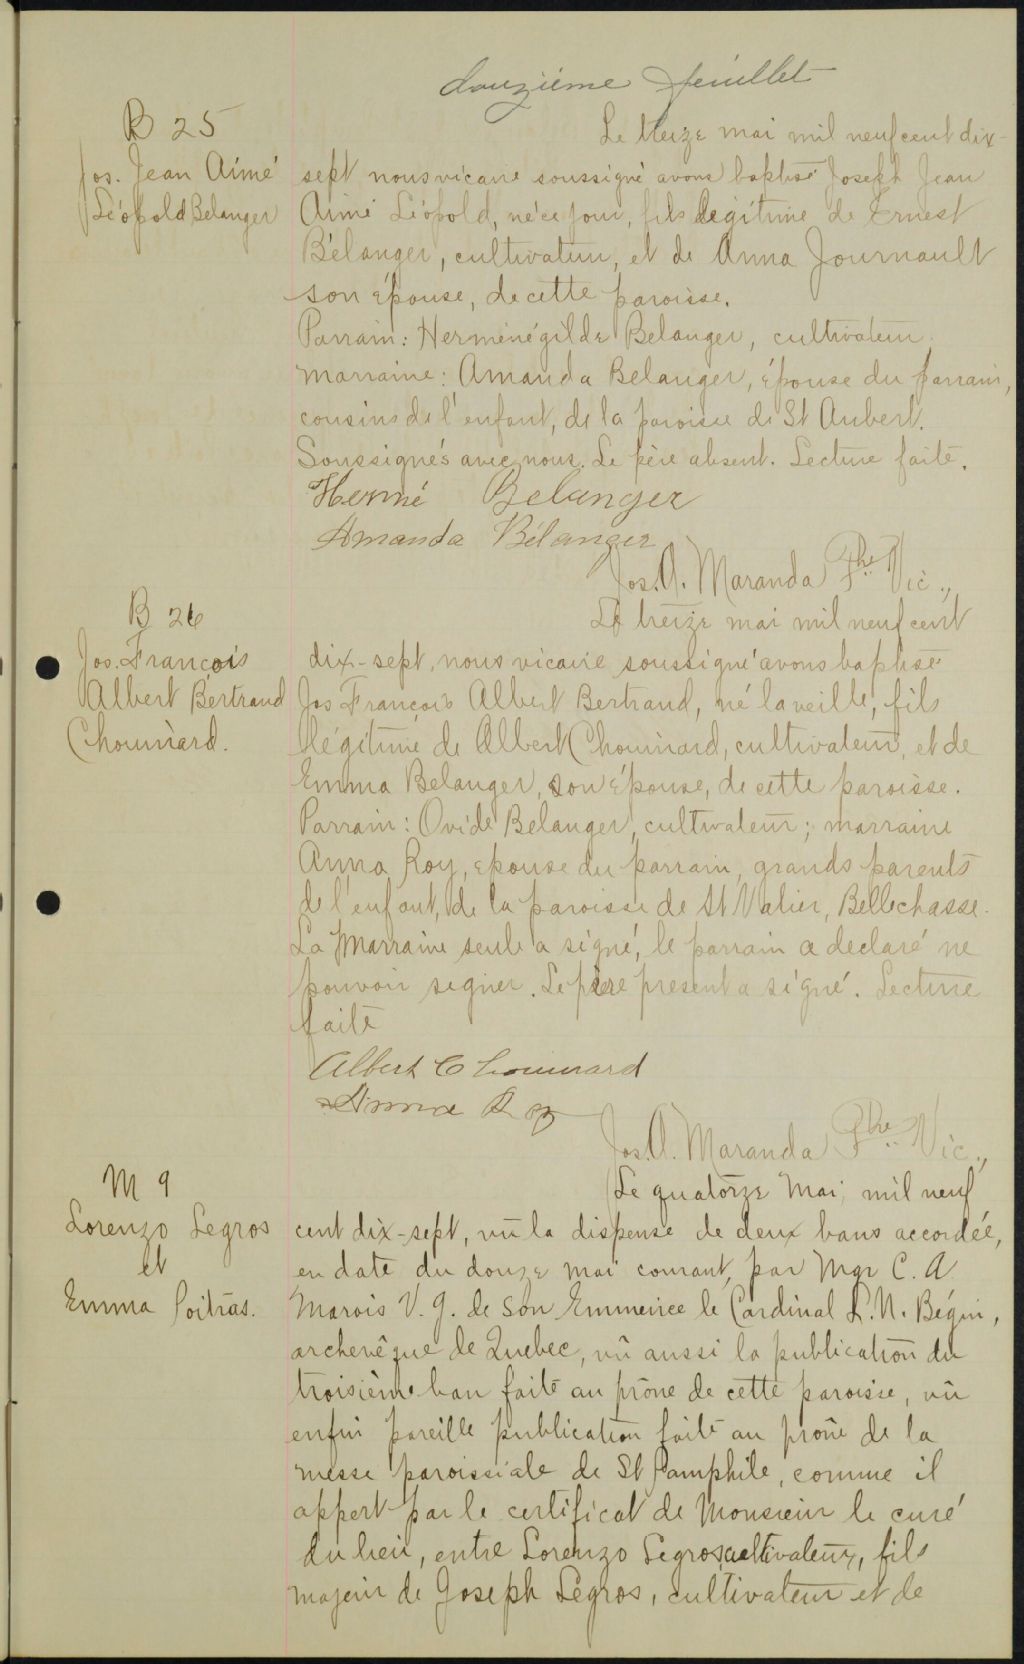 douzième feuillet
B 25
Jos. Jean Aimé
Léopold Belanger
Le treize mai mil neuf cent dix-
sept nous vicaire soussigné avons baptisé Joseph Jean
Aimé Léopold, né ce jour, fils légitime de Ernest
Bélanger, cultivateur, et de Anna Journault
son épouse, de cette paroisse.
Parrain: Herménégilde Belanger, cultivateur.
marraine: Amanda Belanger, épouse du parrain,
cousins de l'enfant, de la paroisse de St Aubert.
Soussignés avec nous. Le père absent. Lecture faite.
Hermé Belanger
Amanda Bélanger
Jos. A. Maranda Ptre Vic.,
B 26
Jos. François
Albert Bertrand
Chouinard.
Le treize mai mil neuf cent
dix-sept, nous vicaire soussigné avons baptisé
Jos François Albert Bertrand, né la veille, fils
légitime de Albert Chouinard, cultivateur, et de
Emma Belanger, son épouse, de cette paroisse.
Parrain: Ovide Belanger, cultivateur; marraine
Anna Roy, epouse du parrain, grands parents
de l'enfant, de la paroisse de St Valier, Bellechasse.
La marraine seule a signé, le parrain a declaré ne
pouvoir signer. Le père present a signé. Lecture
faite
Albert Chouinard
Anna Roy
Jos. A. Maranda Ptre Vic.,
M 9
Lorenzo Legros
et
Emma Poitras.
Le quatorze Mai, mil neuf
cent dix-sept, vu la dispense de deux bans accordée,
en date du douze mai courant, par Mgr C. A
Marois V. G. de Son Emmenice le Cardinal L. N. Bégin,
archevêque de Quebec, vu aussi la publication du
troisième ban faite au prône de cette paroisse, vu
enfin pareille publication faite au prône de la
messe paroissiale de St Pamphile, comme il
appert par le certificat de Monsieur le curé
du lieu, entre Lorenzo Legros, cultivateur, fils
majeur de Joseph Legros, cultivateur et de